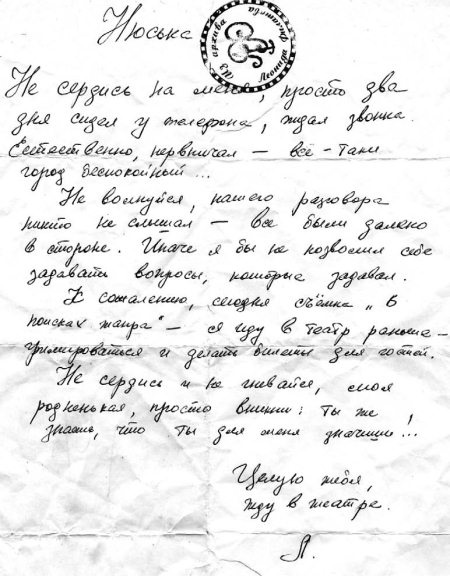 Нюська
Из архива Леонида Филатова
Не сердись на меня, просто два
дня сидел у телефона, ждал звонка.
Естественно, нервничал — всё-таки
город беспокойный...
Не волнуйся, нашего разговора
никто не слышал — все были далеко
в стороне. Иначе я бы не позволил себе
задавать вопросы, которые задавал.
К сожалению, сегодня съёмка „В
поисках жанра“ — я иду в театр раньше —
гримироваться и делать билеты для гостей.
Не сердись и не гневайся, моя
родненькая, просто вникни: ты же
знаешь, что ты для меня значишь...
Целую тебя,
жду в театре.
Л.